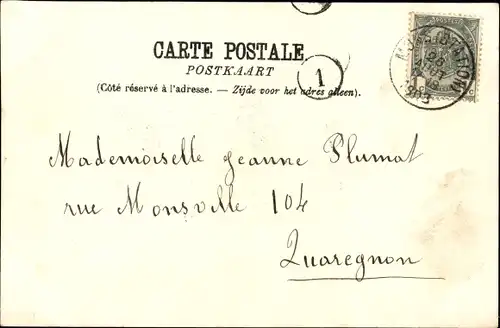 CARTE POSTALE.
POSTKAART
(Côté réservé à l'adresse. — Zijde voor het adres alleen).
1
1903
Mademoiselle Jeanne Plumat
rue Monsville 104
Quaregnon